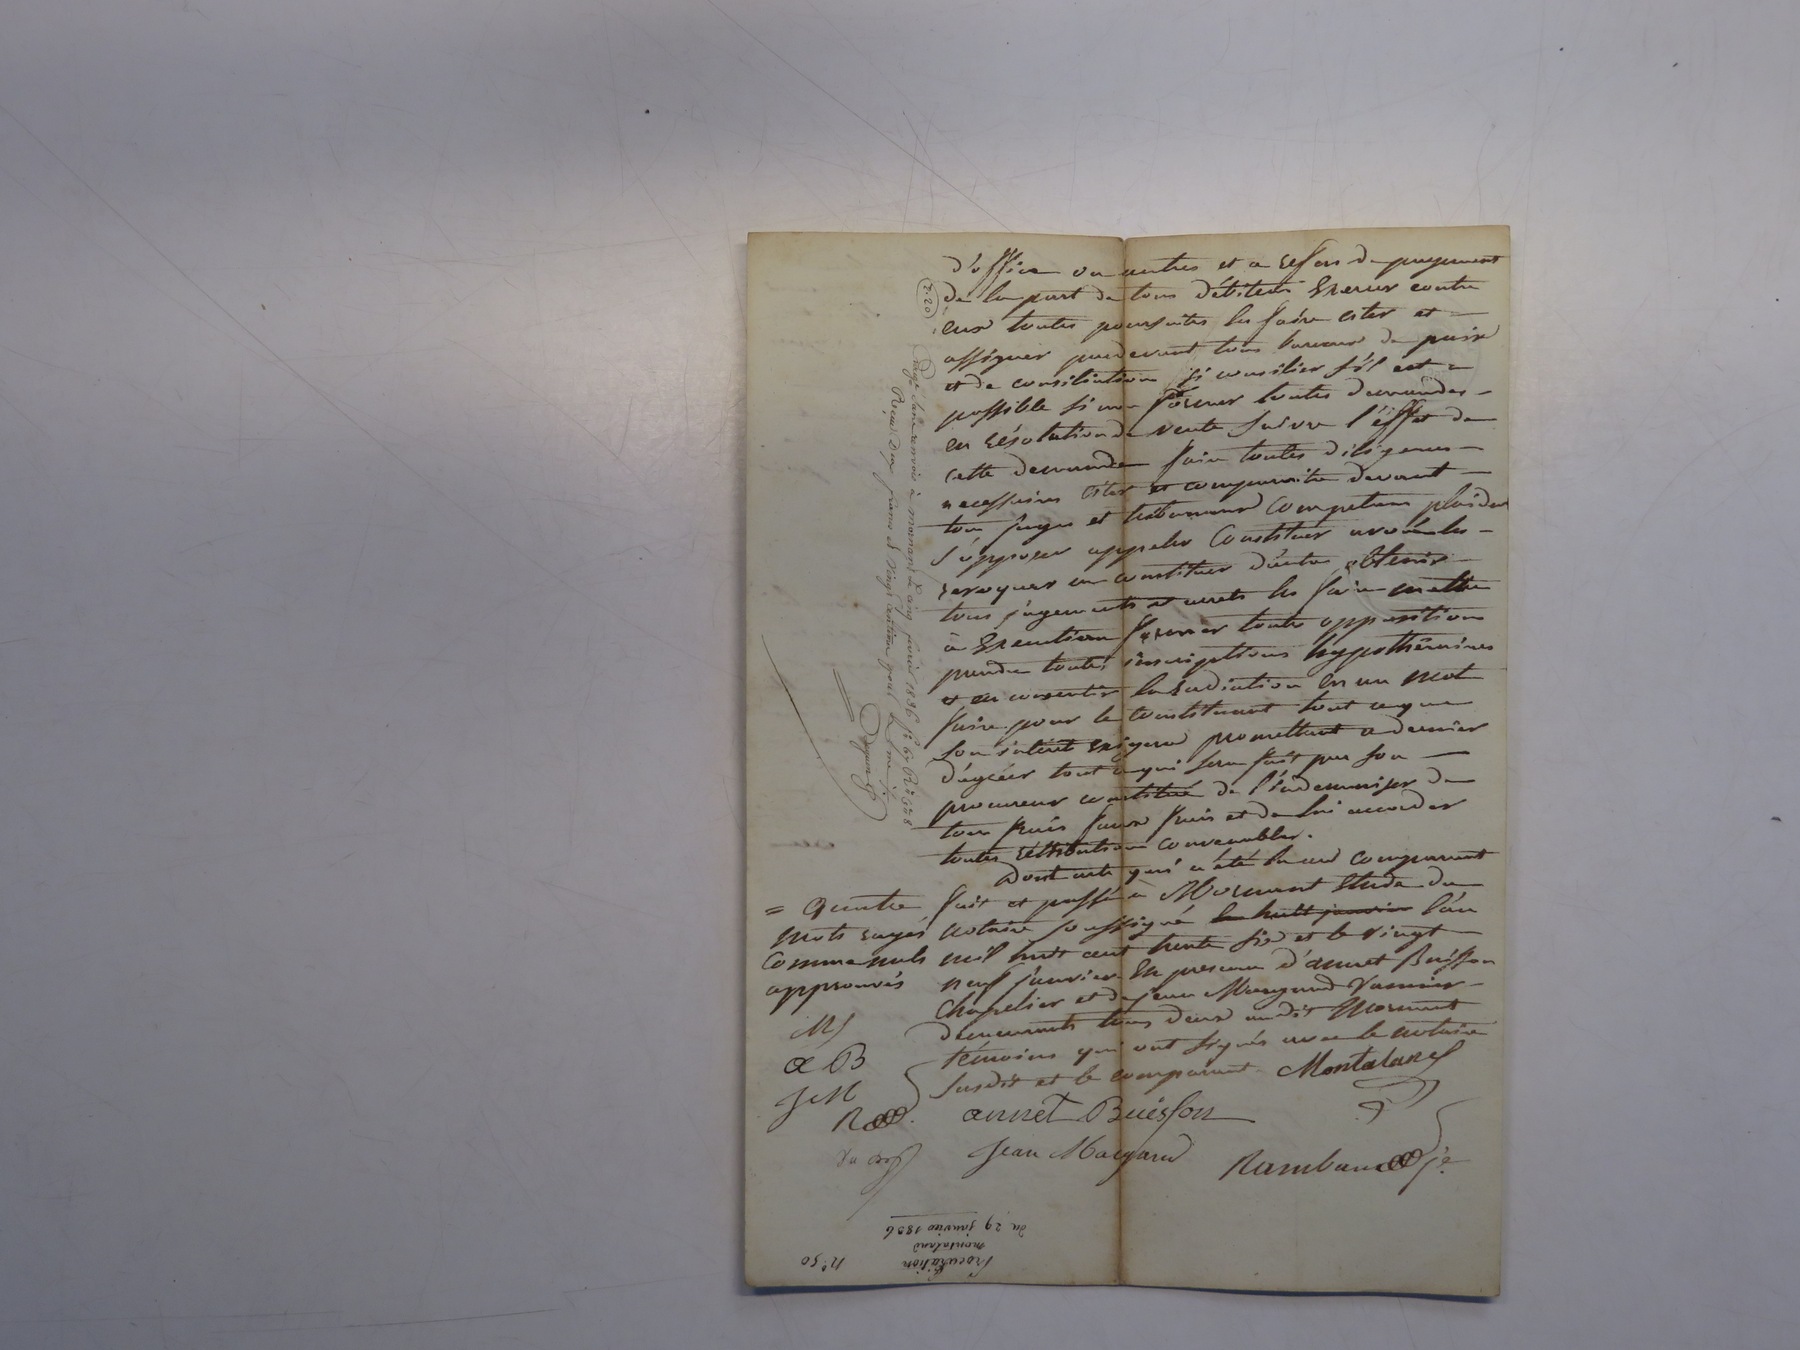 d'office ou autres et a defaut de payement
de la part de tous débiteurs Exercer contre
eux toutes poursuites les faire citer et
assigner pardevant tous bureaux de paix
et de consiliation s'y consilier s'il est
possible sinon former toutes demandes
en résolution de vente suivre l'effet de
cette demande faire toutes diligences
necessaires citer et comparaitre devant
tous juges et tribunaux competans plaider
s'opposer appeler Constituer avoués les
revoquer en constituer d'autres obtenir
tous jugements et arrets les faire mettre
à Execution former toute opposition
prendre toutes inscriptions hypothécaires
et en consentir la radiation en un mot
faire pour le constituant tout ce que
son intérêt exigera promettant ce dernier
d'agréer tout ce qui sera fait par son
procureur constitué de l'indemniser de
tous frais faux frais et de lui accorder
toutes rétribution convenables.
Dont acte qui a été lu au comparant
fait et passé à Mornant Etude du
notaire soussigné le huit janvier l'an
mil huit cent trente six et le vingt
neuf janvier En presence d'annet Buisson
Chapelier et de jean Margand Vannier
demeurants tous deux audit Mornant
témoins qui ont signés avec le notaire
susdit et le comparant Montaland
= Quatre
mots rayés
comme nuls
approuvés
a B
J M
annet Buisson
Jean Margand
Rambaud
2.20
Enregistré sans renvoi à mornant le cinq février 1836 f° 67 R°
Reçu deux francs et vingt centimes pour le dixième
n° 50
Procuration
montaland
du 29 janvier 1836